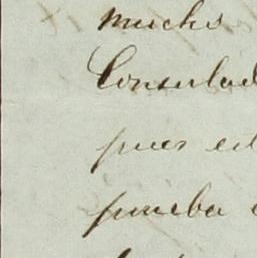 mucho
Consulad
pues est
prueba